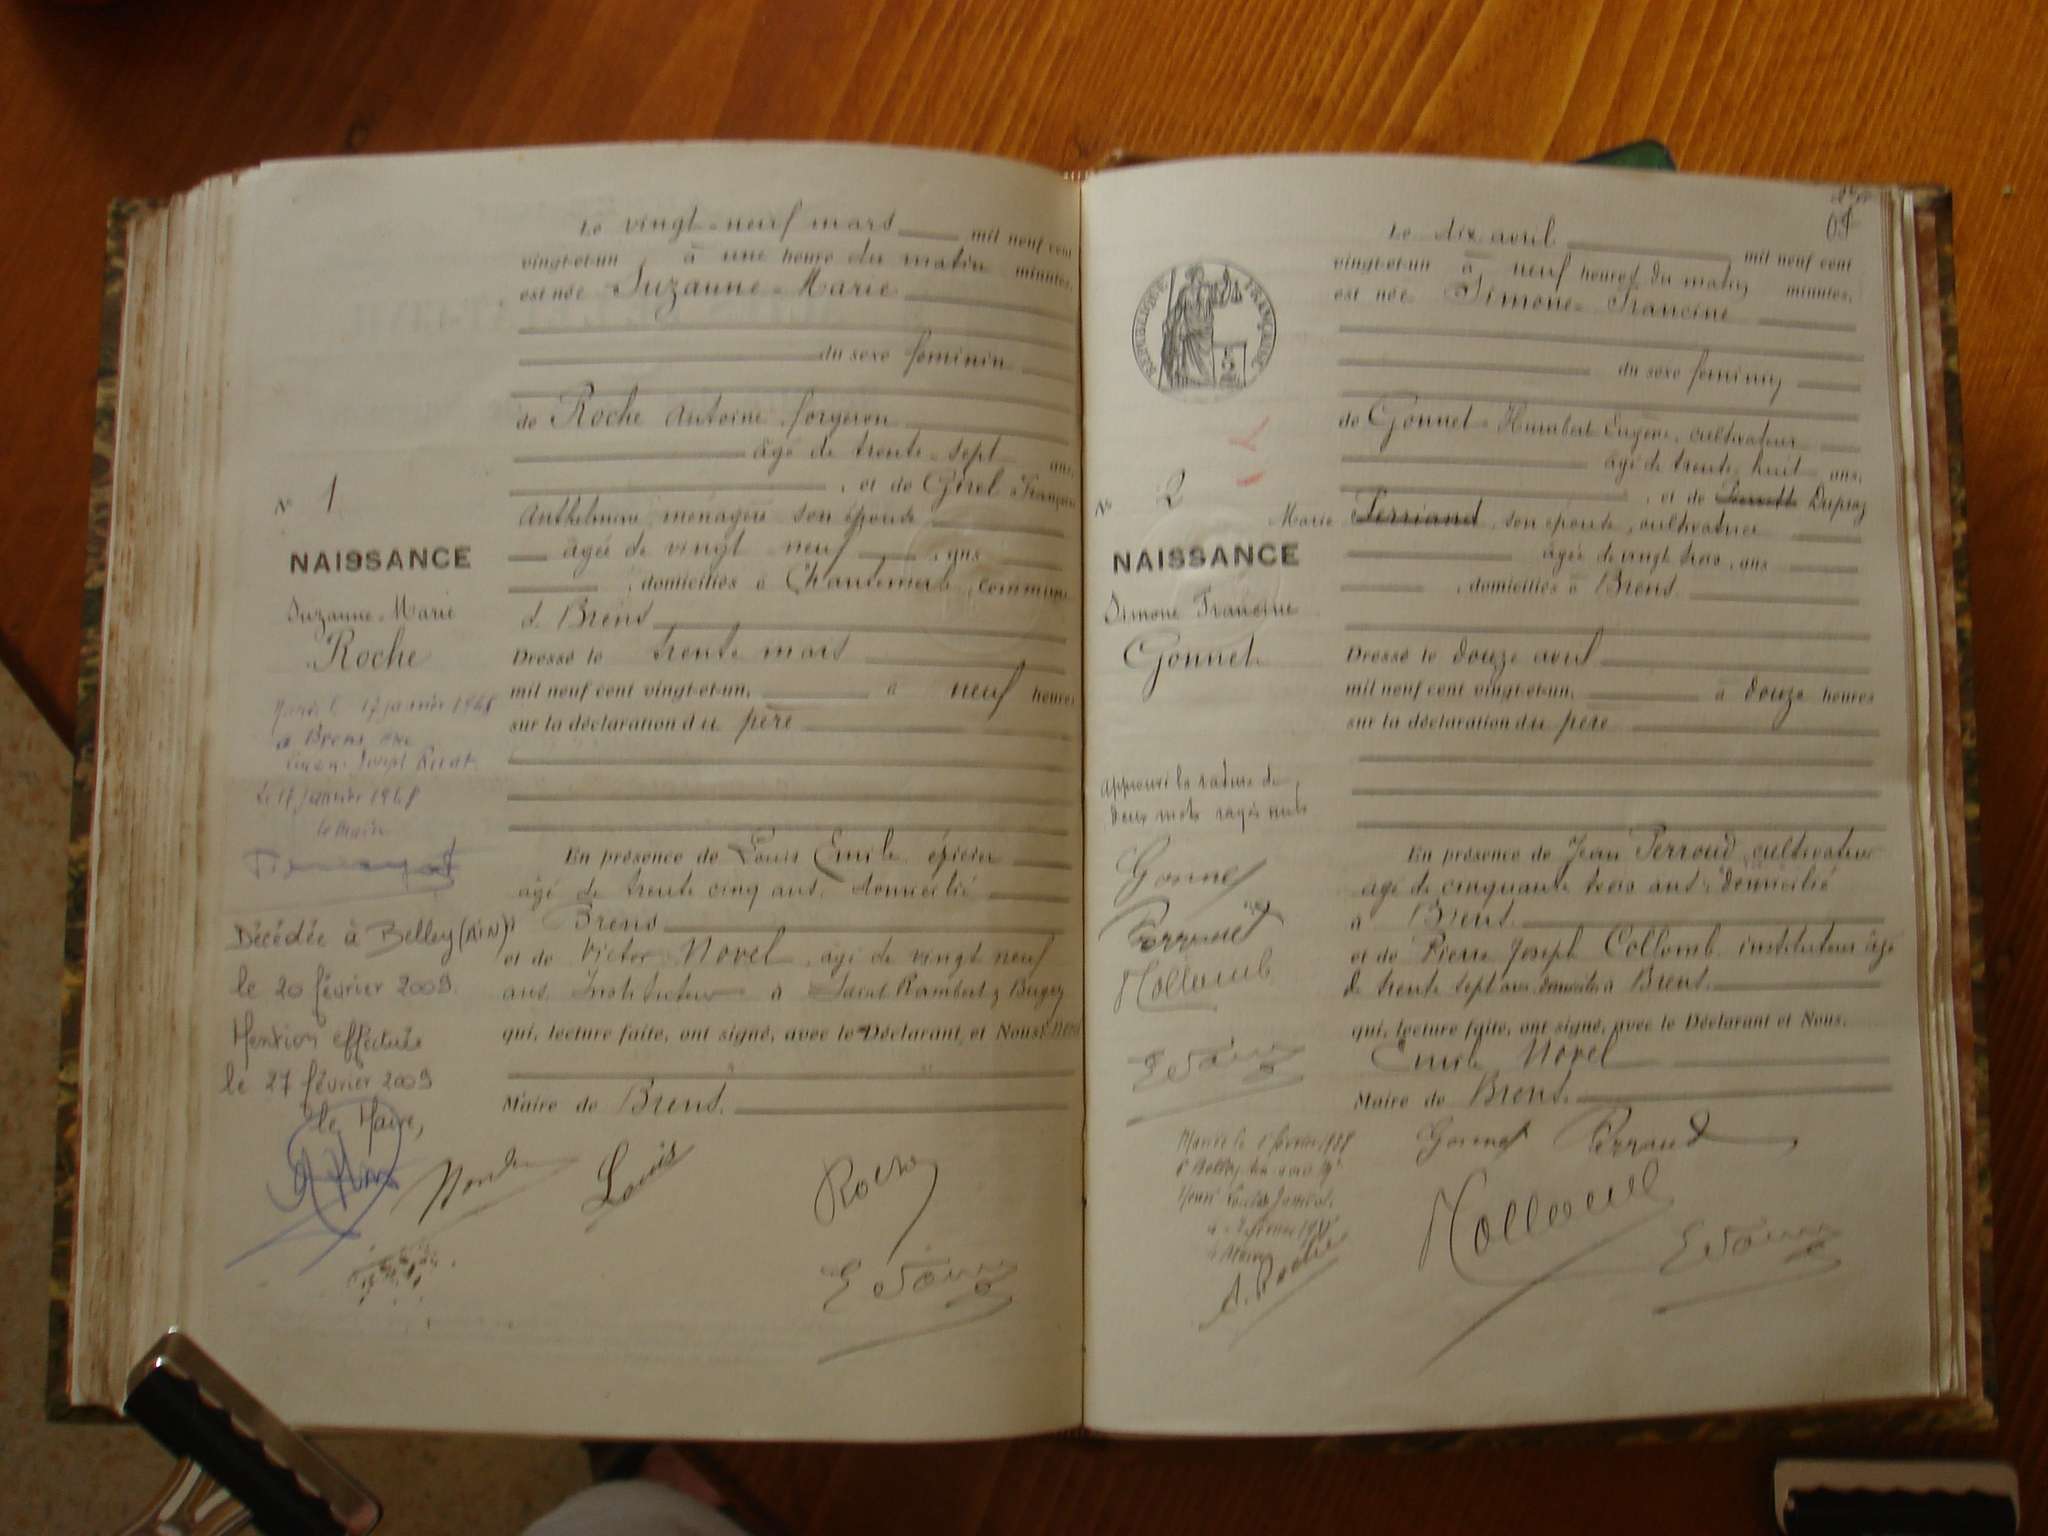 Le vingt-neuf mars mil neuf cent
vingt-et-un à une heure du matin minutes,
est née Suzanne-Marie
du sexe feminin
de Roche Antoine forgeron
âgé de trente-sept ans,
, et de Girel Françoise
Anthelmine ménagère son épouse
âgée de vingt neuf ans
, domiciliés à Chantemerle, commune
d Brens
Dressé le trente mars
mil neuf cent vingt-et-un, à neuf heures
sur la déclaration du père
En présence de Louis Emile épicier
âgé de trente cinq ans, domicilié
à Brens
et de Victor Novel, âgé de vingt neuf
ans Instituteur à Saint Rambert
qui, lecture faite, ont signé, avec le Déclarant, et Nous,
Maire de Brens.
N° 1
NAISSANCE
Suzanne-Marie
Roche
17 janvier 1948
à Brens
Joseph
Le 17 janvier 1948
Décédée à Belley (AIN)
le 20 février 2009.
Mention effectuée
le 27 février 2009
le Maire,
Louis
Roche
05
Le dix avril mil neuf cent
vingt-et-un à neuf heures du matin minutes,
est née Simone-Francine
du sexe feminin
de Gonnet Humbert Eugène, cultivateur
âgé de trente huit ans,
, et de Dupraz
Marie Ferriand, son épouse, cultivatrice
âgée de vingt trois ans
, domiciliés à Brens
Dressé le douze avril
mil neuf cent vingt-et-un, à douze heures
sur la déclaration du père
En présence de Jean Perroud, cultivateur
âgé de cinquante trois ans, domicilié
à Brens.
et de Pierre Joseph Collomb instituteur âgé
de trente sept ans domicilié à Brens.
qui, lecture faite, ont signé, avec le Déclarant et Nous.
Emile Novel
Maire de Brens.
RÉPUBLIQUE FRANÇAISE
N° 2
NAISSANCE
Simone Francine
Gonnet
Approuvé la rature de
deux mots rayés nuls
Gonnet
Perroud
Collomb
Gonnet Perroud
Collomb
A. Roche